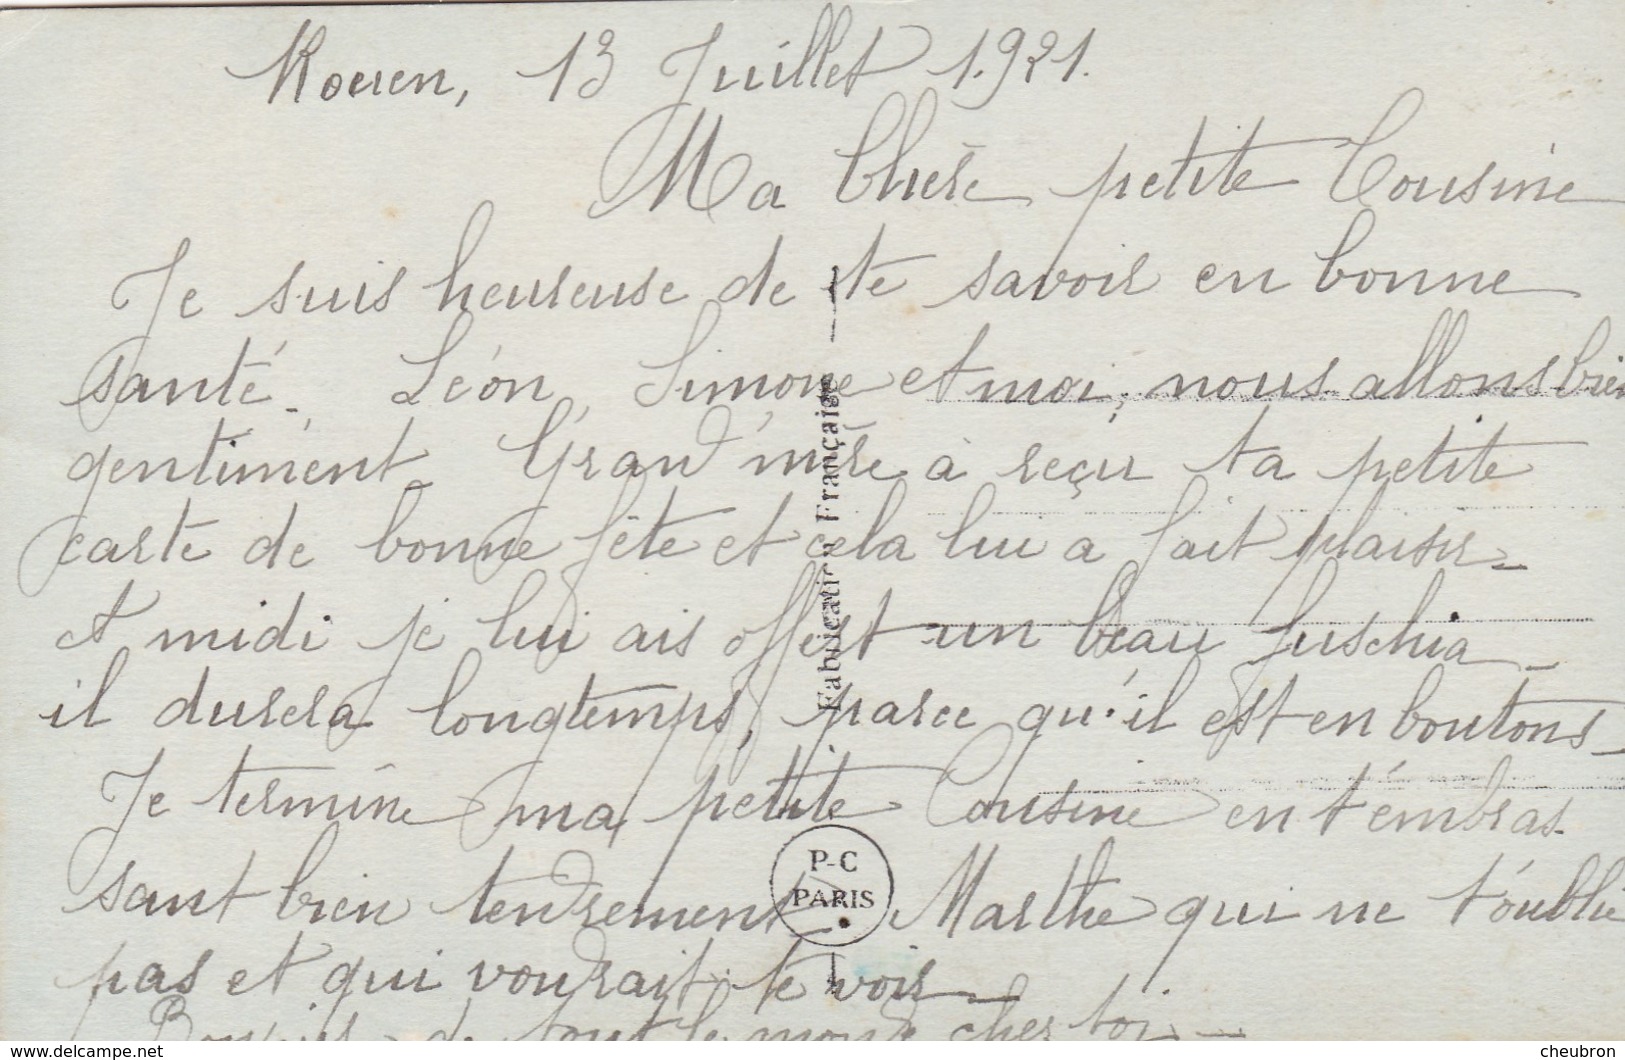 Rouen, 13 Juillet 1.921.
Ma Chère petite Cousine
Je suis heureuse de te savoir en bonne
santé. Léon, Simone et moi, nous allons bien
gentiment. Grand'mère à reçu ta petite
carte de bonne fête et cela lui a fait plaisir -
et midi je lui ais offert un beau fuschia -
il durera longtemps, parce qu'il est en boutons -
Je termine ma petite Cousine en t'embras-
sant bien tendrement. Marthe qui ne t'oublie
pas et qui voudrait te voir -
de tout le monde chez toi -
Fabrication Française
P-C
PARIS
www.delcampe.net
cheubron